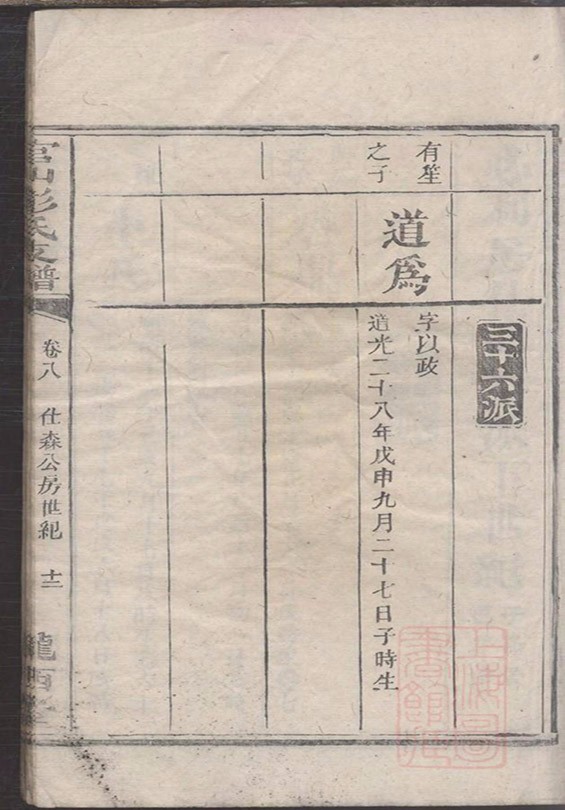 三十六派
有笙
之子
道爲
字以政
道光二十八年戊申九月二十七日子時生
彭氏支譜
卷八 仕森公房世紀 十二
上海圖
書館藏